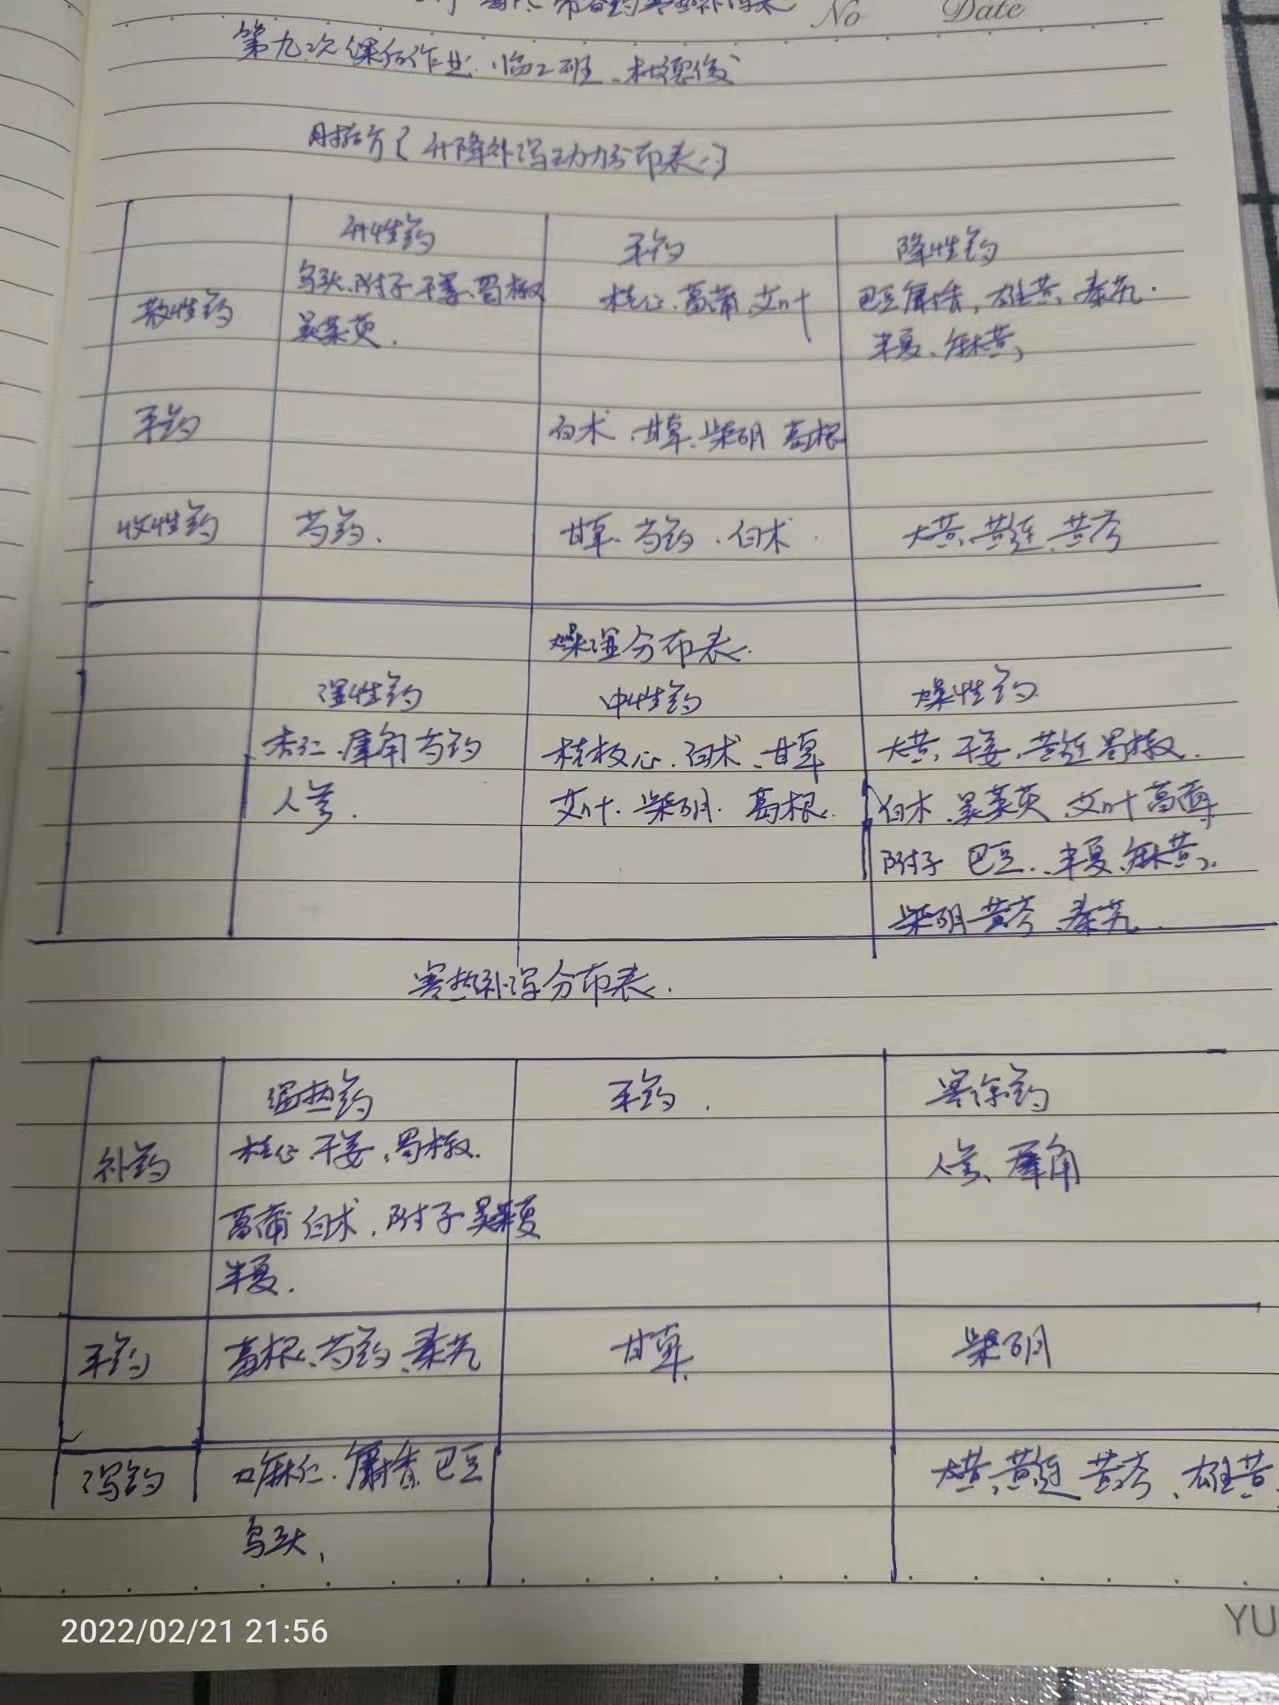 No Date
第九次课后作业 临二班
升降补泻动力分布表
升性药 平药 降性药
散性药 乌头、附子、干姜、蜀椒 桂心、菖蒲 艾叶 巴豆 麝香, 雄黄, 秦艽.
吴茱萸. 半夏、麻黄,
平药 白术、甘草、柴胡 葛根
收性药 芍药、 甘草、芍药、白术 大黄、黄连、黄芩
燥湿分布表.
湿性药 中性药 燥性药
杏仁、犀角 芍药 桂枝心、白术、甘草 大黄, 干姜、黄连 蜀椒.
人参. 艾叶、柴胡. 葛根. 白术、吴茱萸 艾叶 菖蒲
附子 巴豆、半夏、麻黄,
柴胡 黄芩、秦艽.
寒热补泻分布表.
温热药 平药. 寒凉药
补药 桂心 干姜、蜀椒. 人参、犀角
菖蒲 白术, 附子 吴茱萸
半夏.
平药 葛根、芍药、秦艽 甘草. 柴胡
泻药 大麻仁、麝香、巴豆 大黄、黄连 黄芩、雄黄
乌头,
2022/02/21 21:56
YU